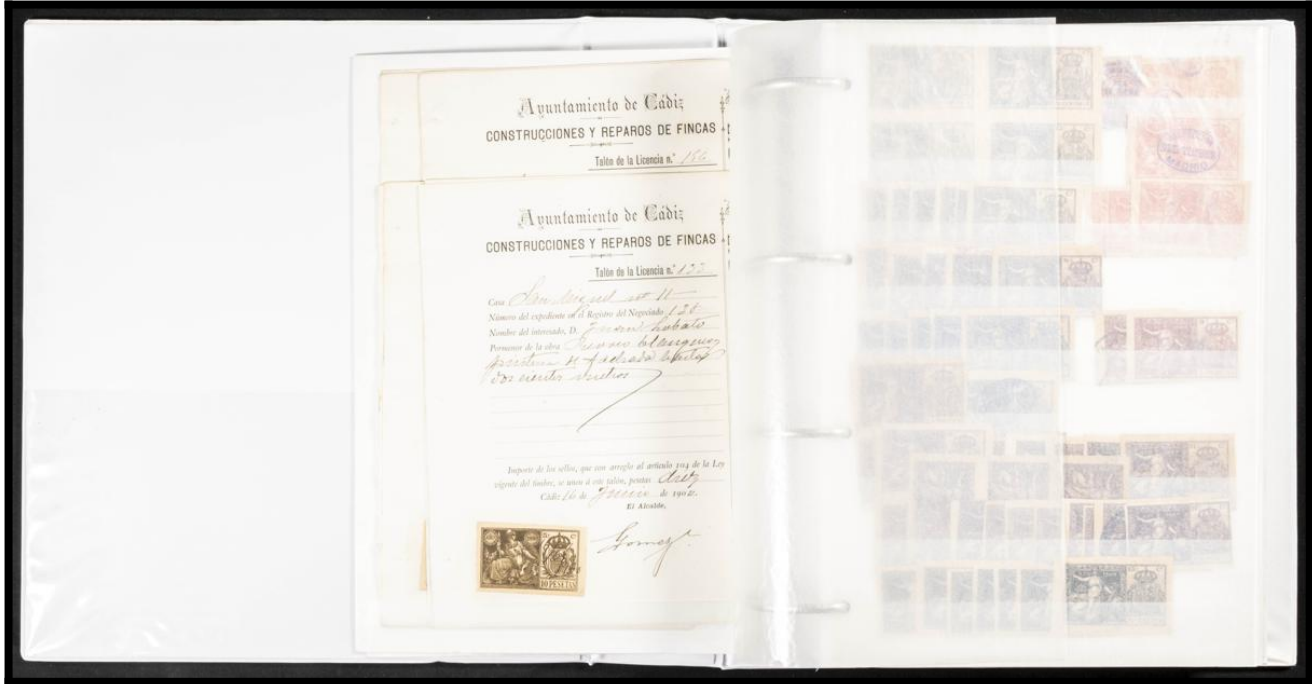 Ayuntamiento de Cádiz
CONSTRUCCIONES Y REPAROS DE FINCAS
Talón de la Licencia n.º 156
Ayuntamiento de Cádiz
CONSTRUCCIONES Y REPAROS DE FINCAS
Talón de la Licencia n.º 122
Casa San Miguel nº 11
Número del expediente en el Registro del Negociado 120
Nombre del interesado, D. Lobato
Pormenor de la obra blanqueo
pintura de fachada
dos cientos metros
Importe de los sellos, que con arreglo al artículo 204 de la Ley
vigente del timbre, se unen á este talón, pesetas diez
Cádiz 16 de Junio de 190
El Alcalde,
Gomez
10 PESETAS
MADRID